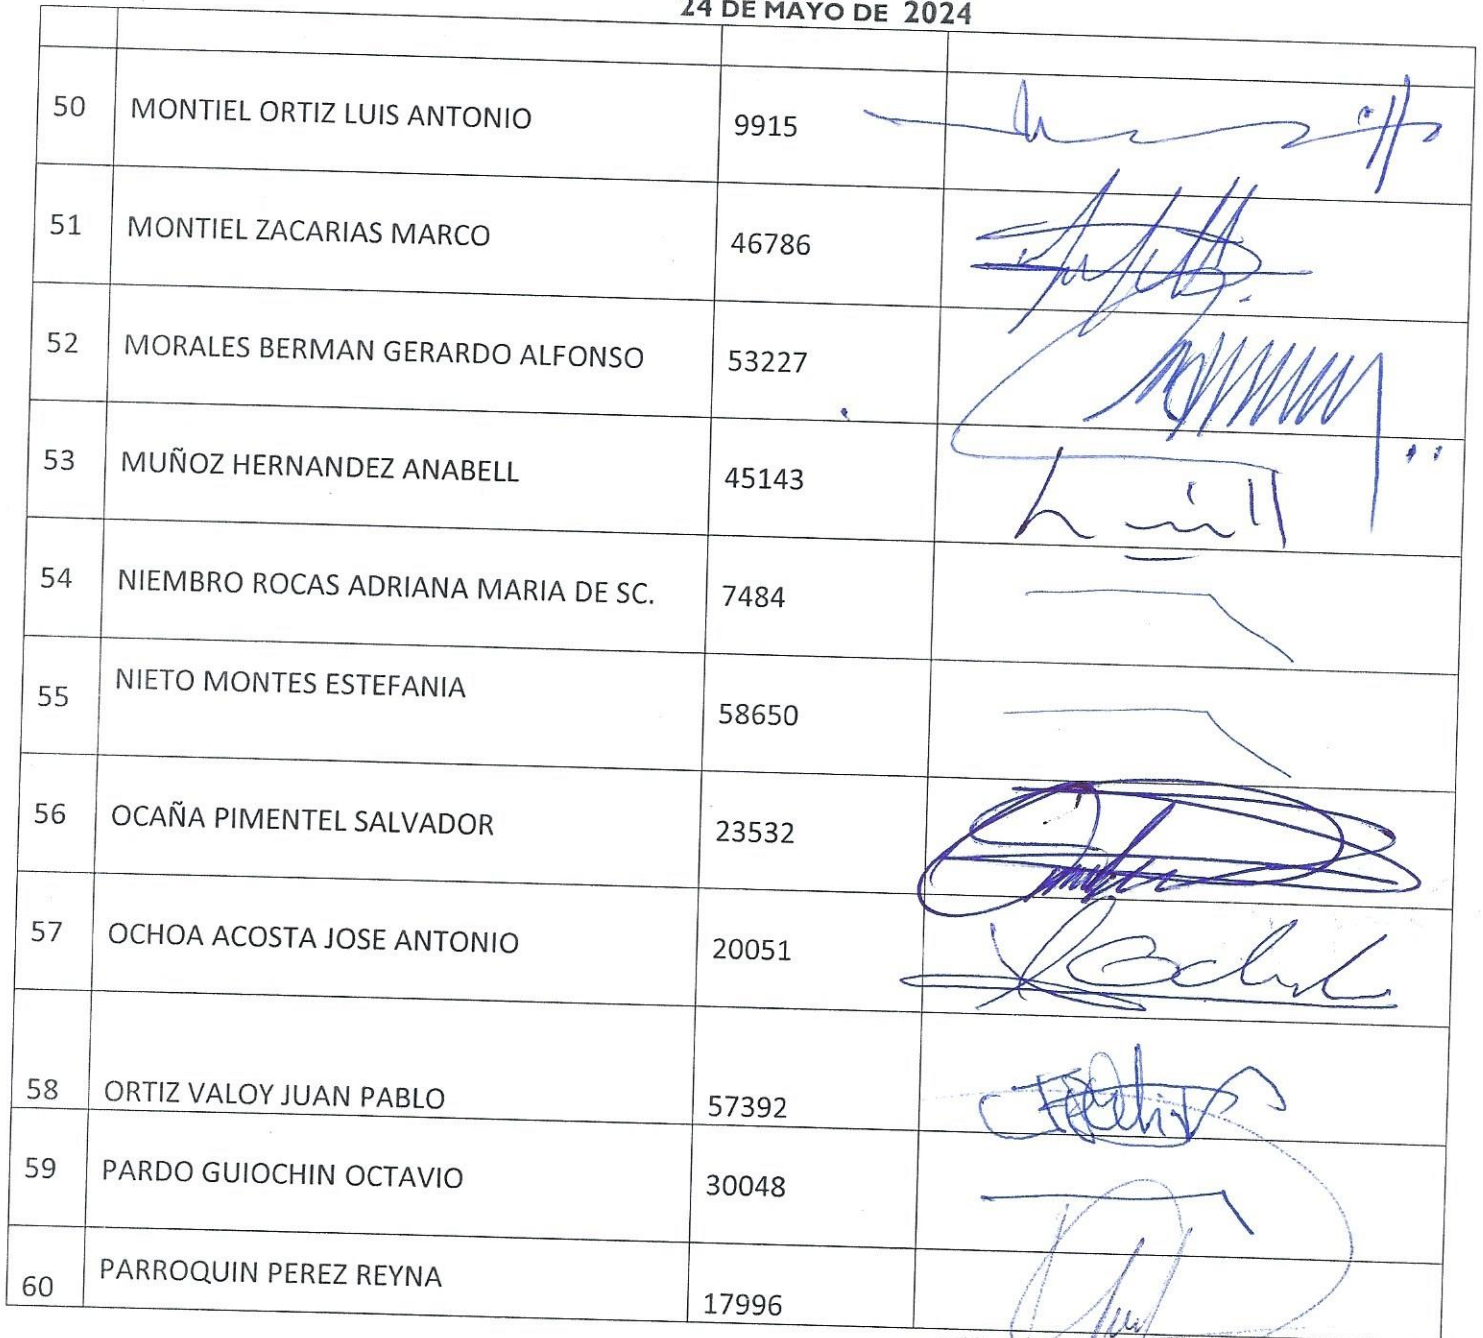 24 DE MAYO DE 2024
50 MONTIEL ORTIZ LUIS ANTONIO 9915
51 MONTIEL ZACARIAS MARCO 46786
52 MORALES BERMAN GERARDO ALFONSO 53227
53 MUÑOZ HERNANDEZ ANABELL 45143
54 NIEMBRO ROCAS ADRIANA MARIA DE SC. 7484
55 NIETO MONTES ESTEFANIA 58650
56 OCAÑA PIMENTEL SALVADOR 23532
57 OCHOA ACOSTA JOSE ANTONIO 20051
58 ORTIZ VALOY JUAN PABLO 57392
59 PARDO GUIOCHIN OCTAVIO 30048
60 PARROQUIN PEREZ REYNA 17996